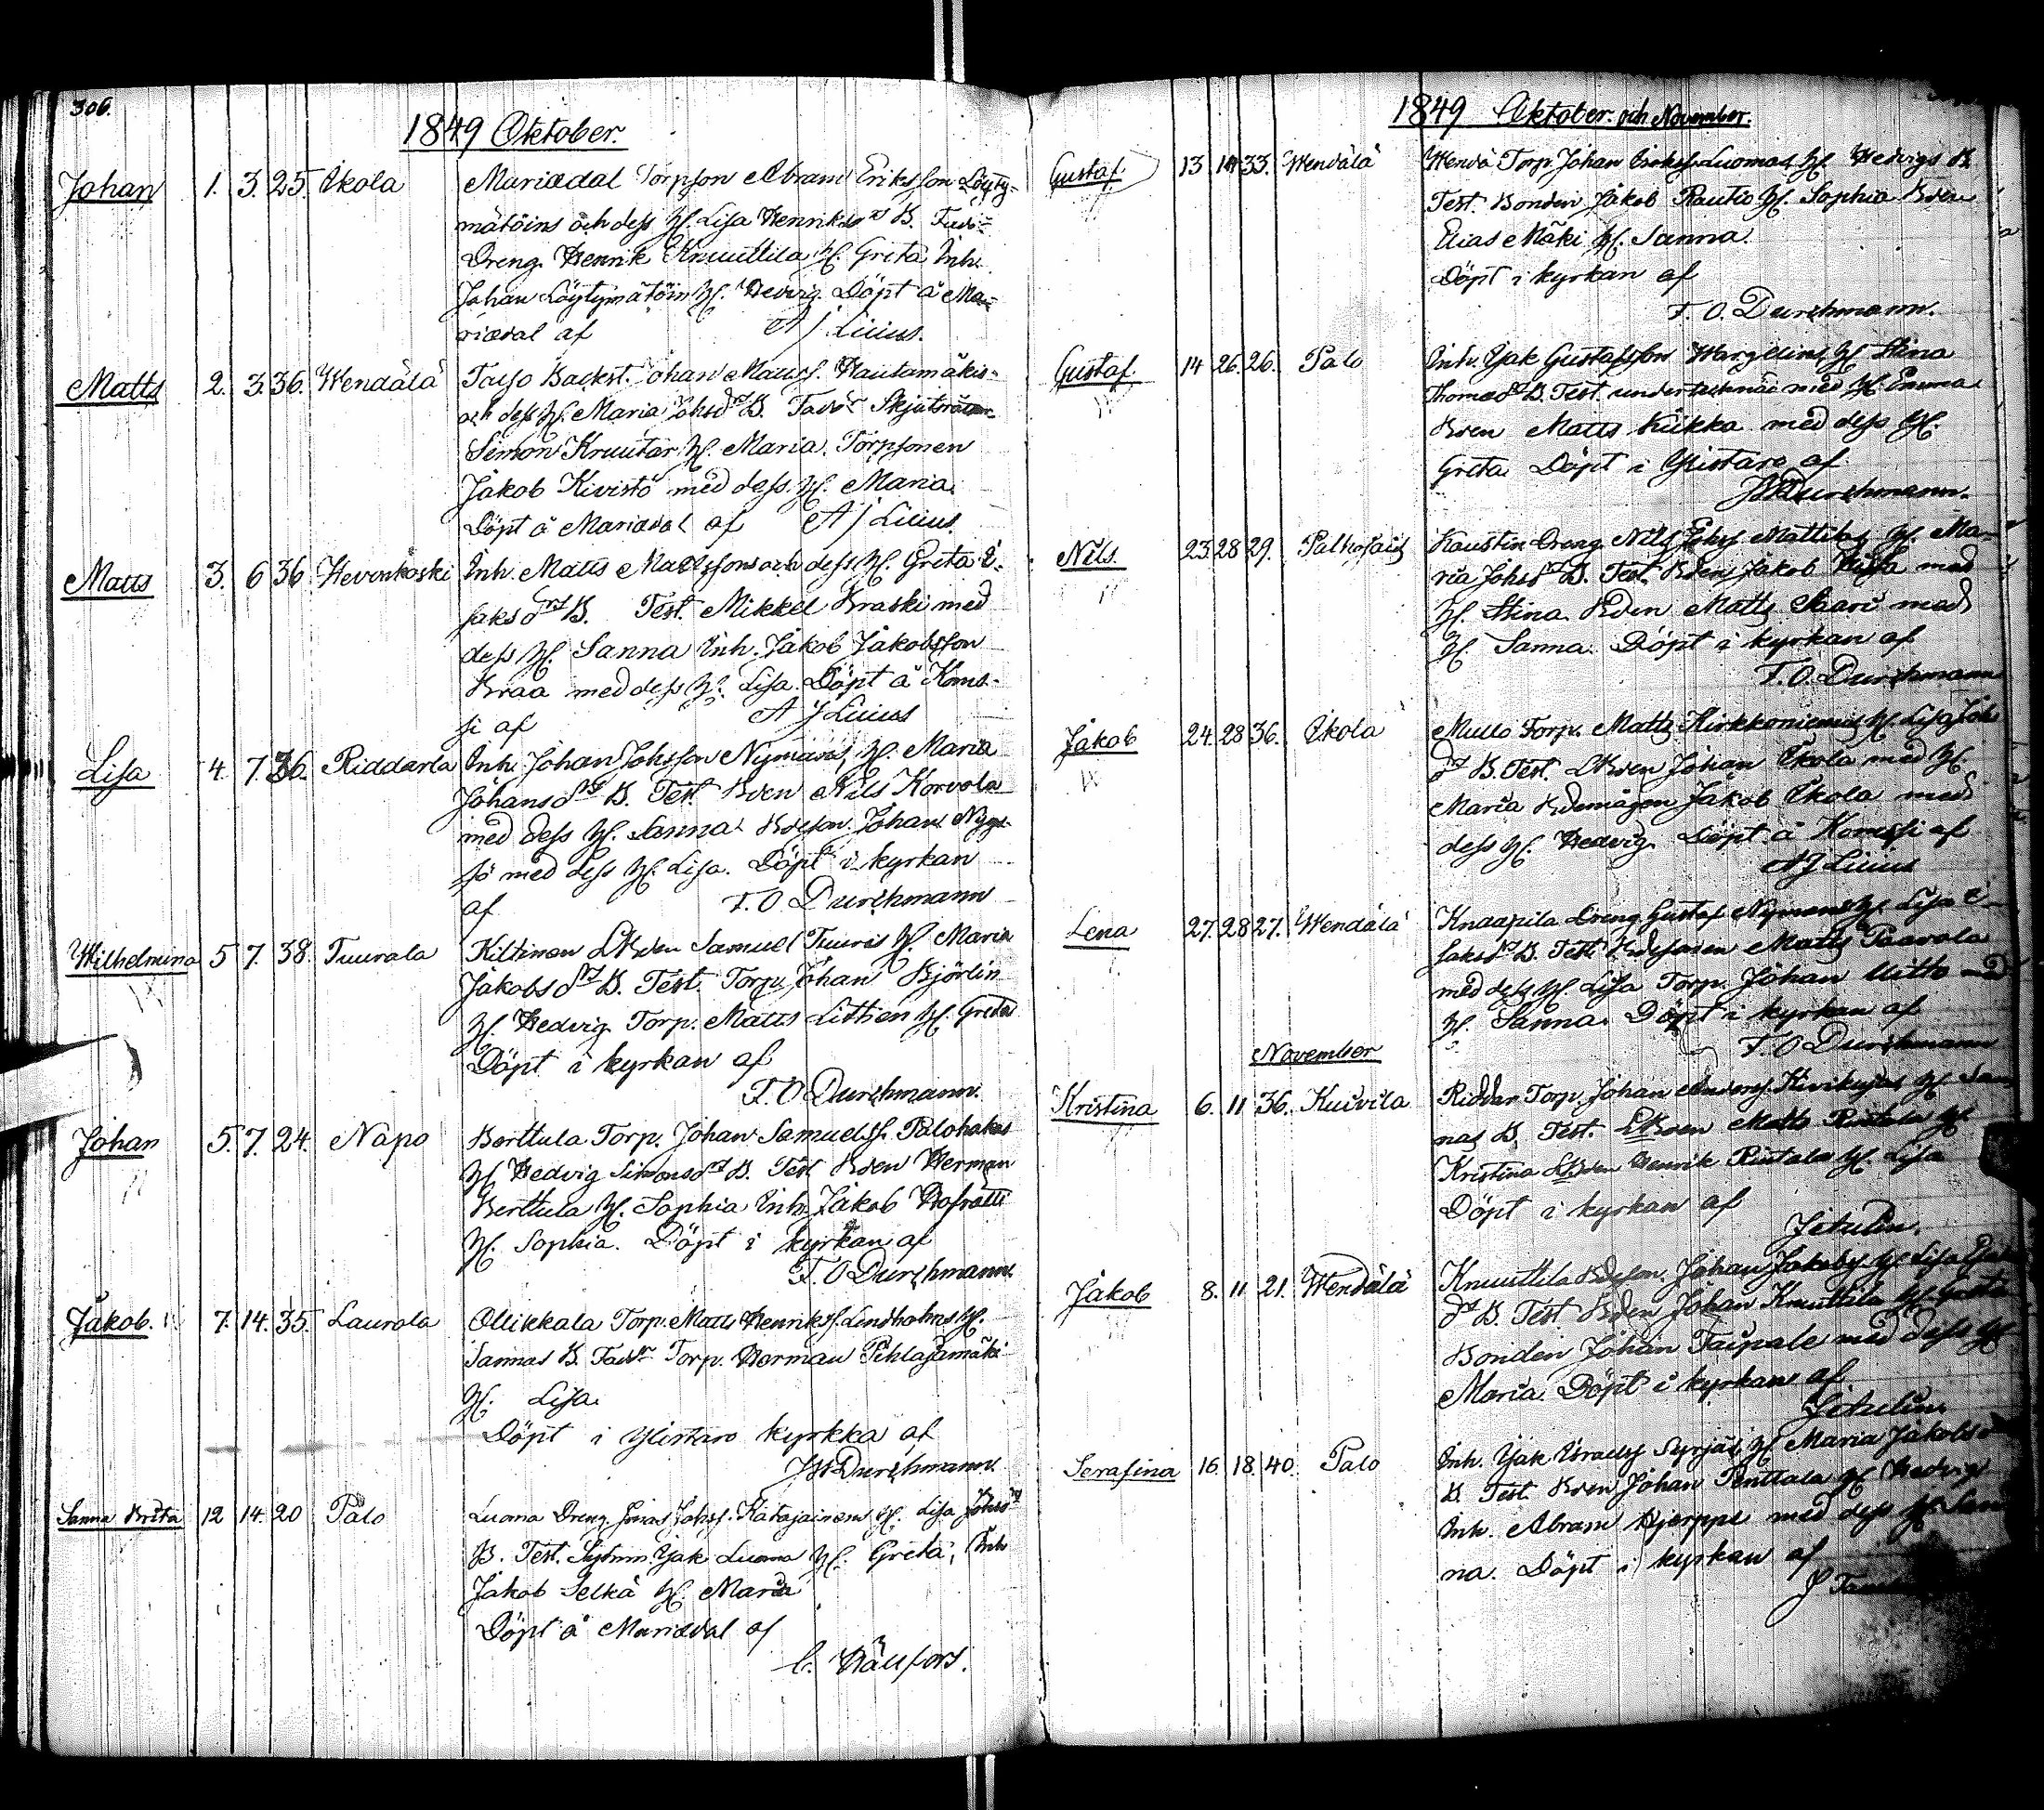 306.
1849 Oktober.
Johan 1. 3. 25. Ikola Mariædal Torpson Abram Eriksson Löyty-
mätöins och dess H. Lisa Henriksdr B.
Dreng Henrik Knuuttila H. Greta Inh.
Johan Löytymätöin H. Hedvig. Döpt å Ma-
riædal af A J Lilius.
Matts 2. 3. 36. Wendälä Johan Mattss. Hautamäkis
och dess H. Maria Johsdr B.
Simon Knuutar H. Maria. Torpsonen
Jakob Kivistö med dess H. Maria.
Döpt å Mariædal af A J Lilius.
Matts 3. 6 36. Hevonkoski Inh. Matts Mattssons och dess H. Greta I-
saksdr B. Test. Mikkel Kraski med
dess H. Sanna Inh. Jakob Jakobsson
Kraa med dess H. Lisa. Döpt å Koms-
si af A J Lilius
Lisa 4. 7. 36. Riddarla Inh. Johan Johsson Nymans, H. Maria
Johansdr B. Test. Bden Nils Korvola
med dess H. Sanna. Bdeson. Johan Nygs-
sö med dess H. Lisa. Döpt i kyrkan
af F. O. Durchmann
Wilhelmina 5 7. 38. Tuurala Kiltinen LBden Samuel Tuuris H. Maria
Jakobsdr B. Test. Torp. Johan Björlin
H. Hedvig. Torp. Matts Littien H. Greta
Döpt i kyrkan af
F. O Durchmann.
Johan 5. 7. 24. Napo Berttula Torp. Johan Samuelss. Palohakas
H. Hedvig Simonsdr B. Test Bden Herman
Berttula H. Sophia Inh. Jakob Hofrätti
H. Sophia. Döpt i kyrkan af
F. O Durchmann.
Jakob. 7. 14. 35. Laurola Ollikkala Torp. Matts Henrikss. Lindholms H.
Sannas B. Torp. Herman Pihlajamäki
H. Lisa.
Döpt i Ylistaro kyrkka af
Durchmann.
Sanna Brita 12 14. 20 Palo Luoma Dreng Jonas Johss. Katajainens H. Lisa Johsdr
B. Test. Isak Luoma H. Greta, Inh
Jakob Selkä H. Maria
Döpt å Mariædal af
C. Hällfors.
1849 Oktober. och November.
Gustaf. 13 14 33. Wendälä Wendä Torp. Johan Luomas H. Hedvigs B.
Test. Bonden Jakob Rautio H. Sophia Bden
Elias Mäki H. Sanna.
Döpt i kyrkan af
F. O. Durchmann.
Gustaf. 14 26. 26. Palo Inh. Isak Gustafsson Wargelins H Stina
Thomædr B. Test. undertecknäd med H. Emma
Bden Matts Kiikka med dess H.
Greta. Döpt i Ylistaro af
Durchmann.
Nils. 23 28 29. Kaustin Dreng Nils Mattilas H. Ma-
ria Johsdr B. Test. Bden Jakob med
H. Stina. Bden Matts Saari med
H Sanna. Döpt i kyrkan af
F. O. Durchmann
Jakob 24. 28 36. Ikola Mullo Torp. Matts Kirkkoniemis H. Lisa Joh
dr B. Test. LBden Johan Ikola med H.
Maria Bdemågen Jakob Ikola med
dess H. Hedvig. Döpt å Komssi af
A J Lilius
Lena 27. 28 27. Wendälä Knaapila Dreng Gustaf Nymans H. Lisa I-
saksdr B. Test. Bdesonen Matts Paavola
med dess H. Lisa Torp. Johan Uitto md
H. Sanna. Döpt i kyrkan af
F. O Durchmann
November
Kristina 6. 11 36. Kuivila Riddar Torp. Johan Anderss. Kivikujas H. San
nas B. Test. LBden Matts Rintala H
Kristina LBden Henrik Rintala H. Lisa
Döpt i kyrkan af
Jakob 8. 11 21. Wendälä Knuuttila Bdeson. Johan Jakobss H. Lisa
dr B. Test Bden Johan Knuttila H. Greta
Bonden Johan Taipale med dess H
Maria. Döpt i kyrkan af
Serafina 16. 18. 40. Palo Inh. Isak Israelss Syrjäs H. Maria Jakobsd
B. Test. Bden Johan Penttala H Hedvig
Inh. Abram Hjerppe med dess H. San
na. Döpt i kyrkan af